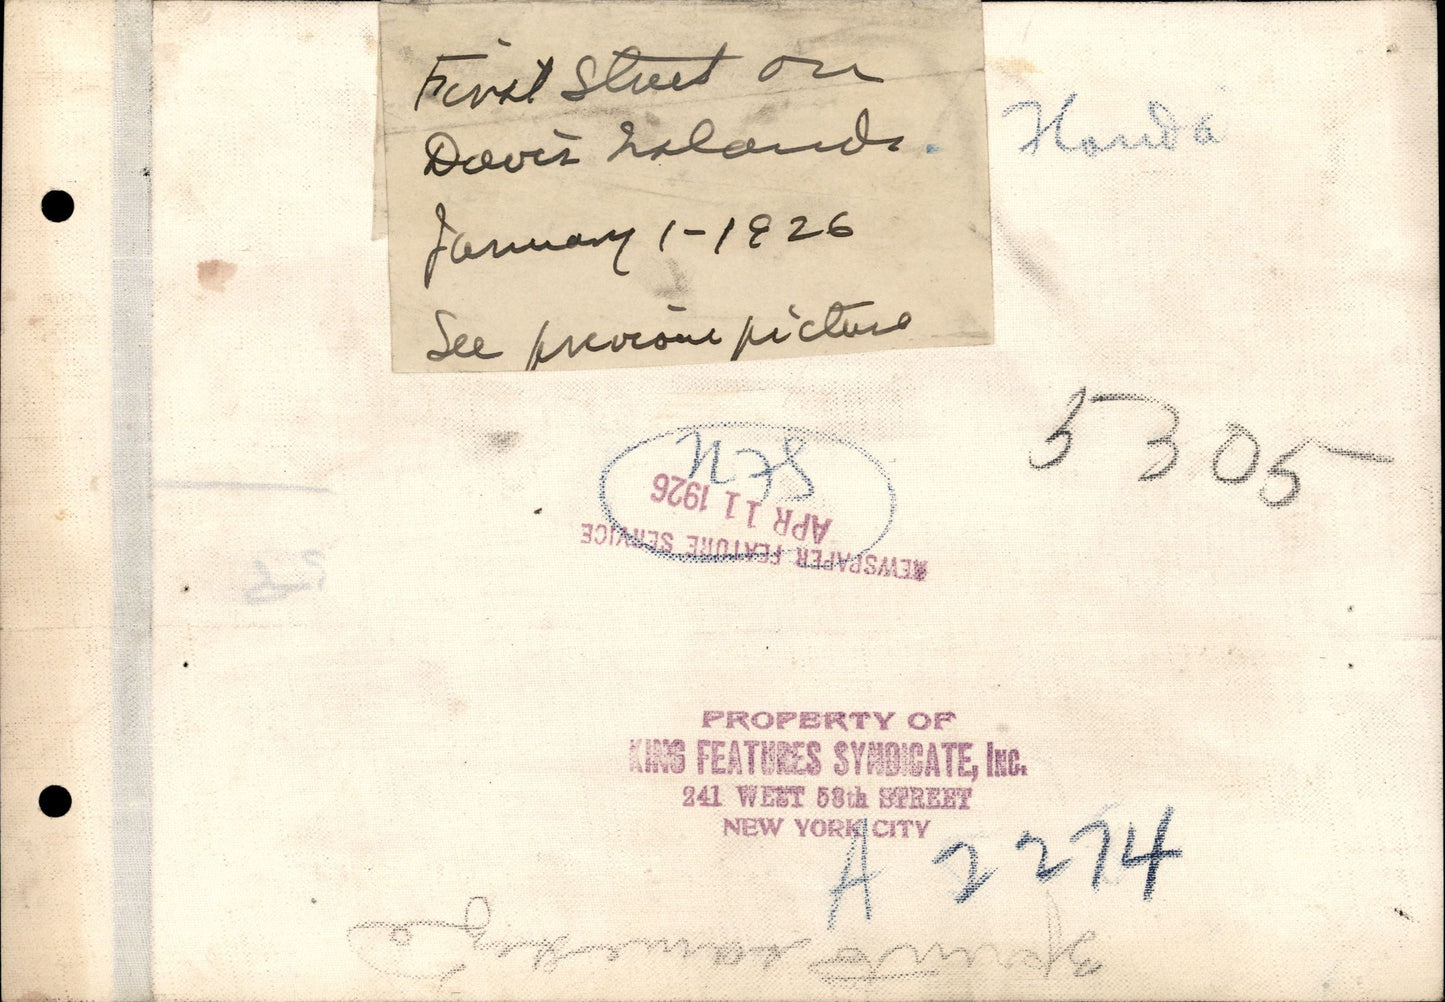 First Street on
Davis Islands.
January 1-1926
See previous picture
Florida
5305
NFS
APR 11 1926
NEWSPAPER FEATURE SERVICE
PROPERTY OF
KING FEATURES SYNDICATE, Inc.
241 WEST 58th STREET
NEW YORK CITY
A 2274